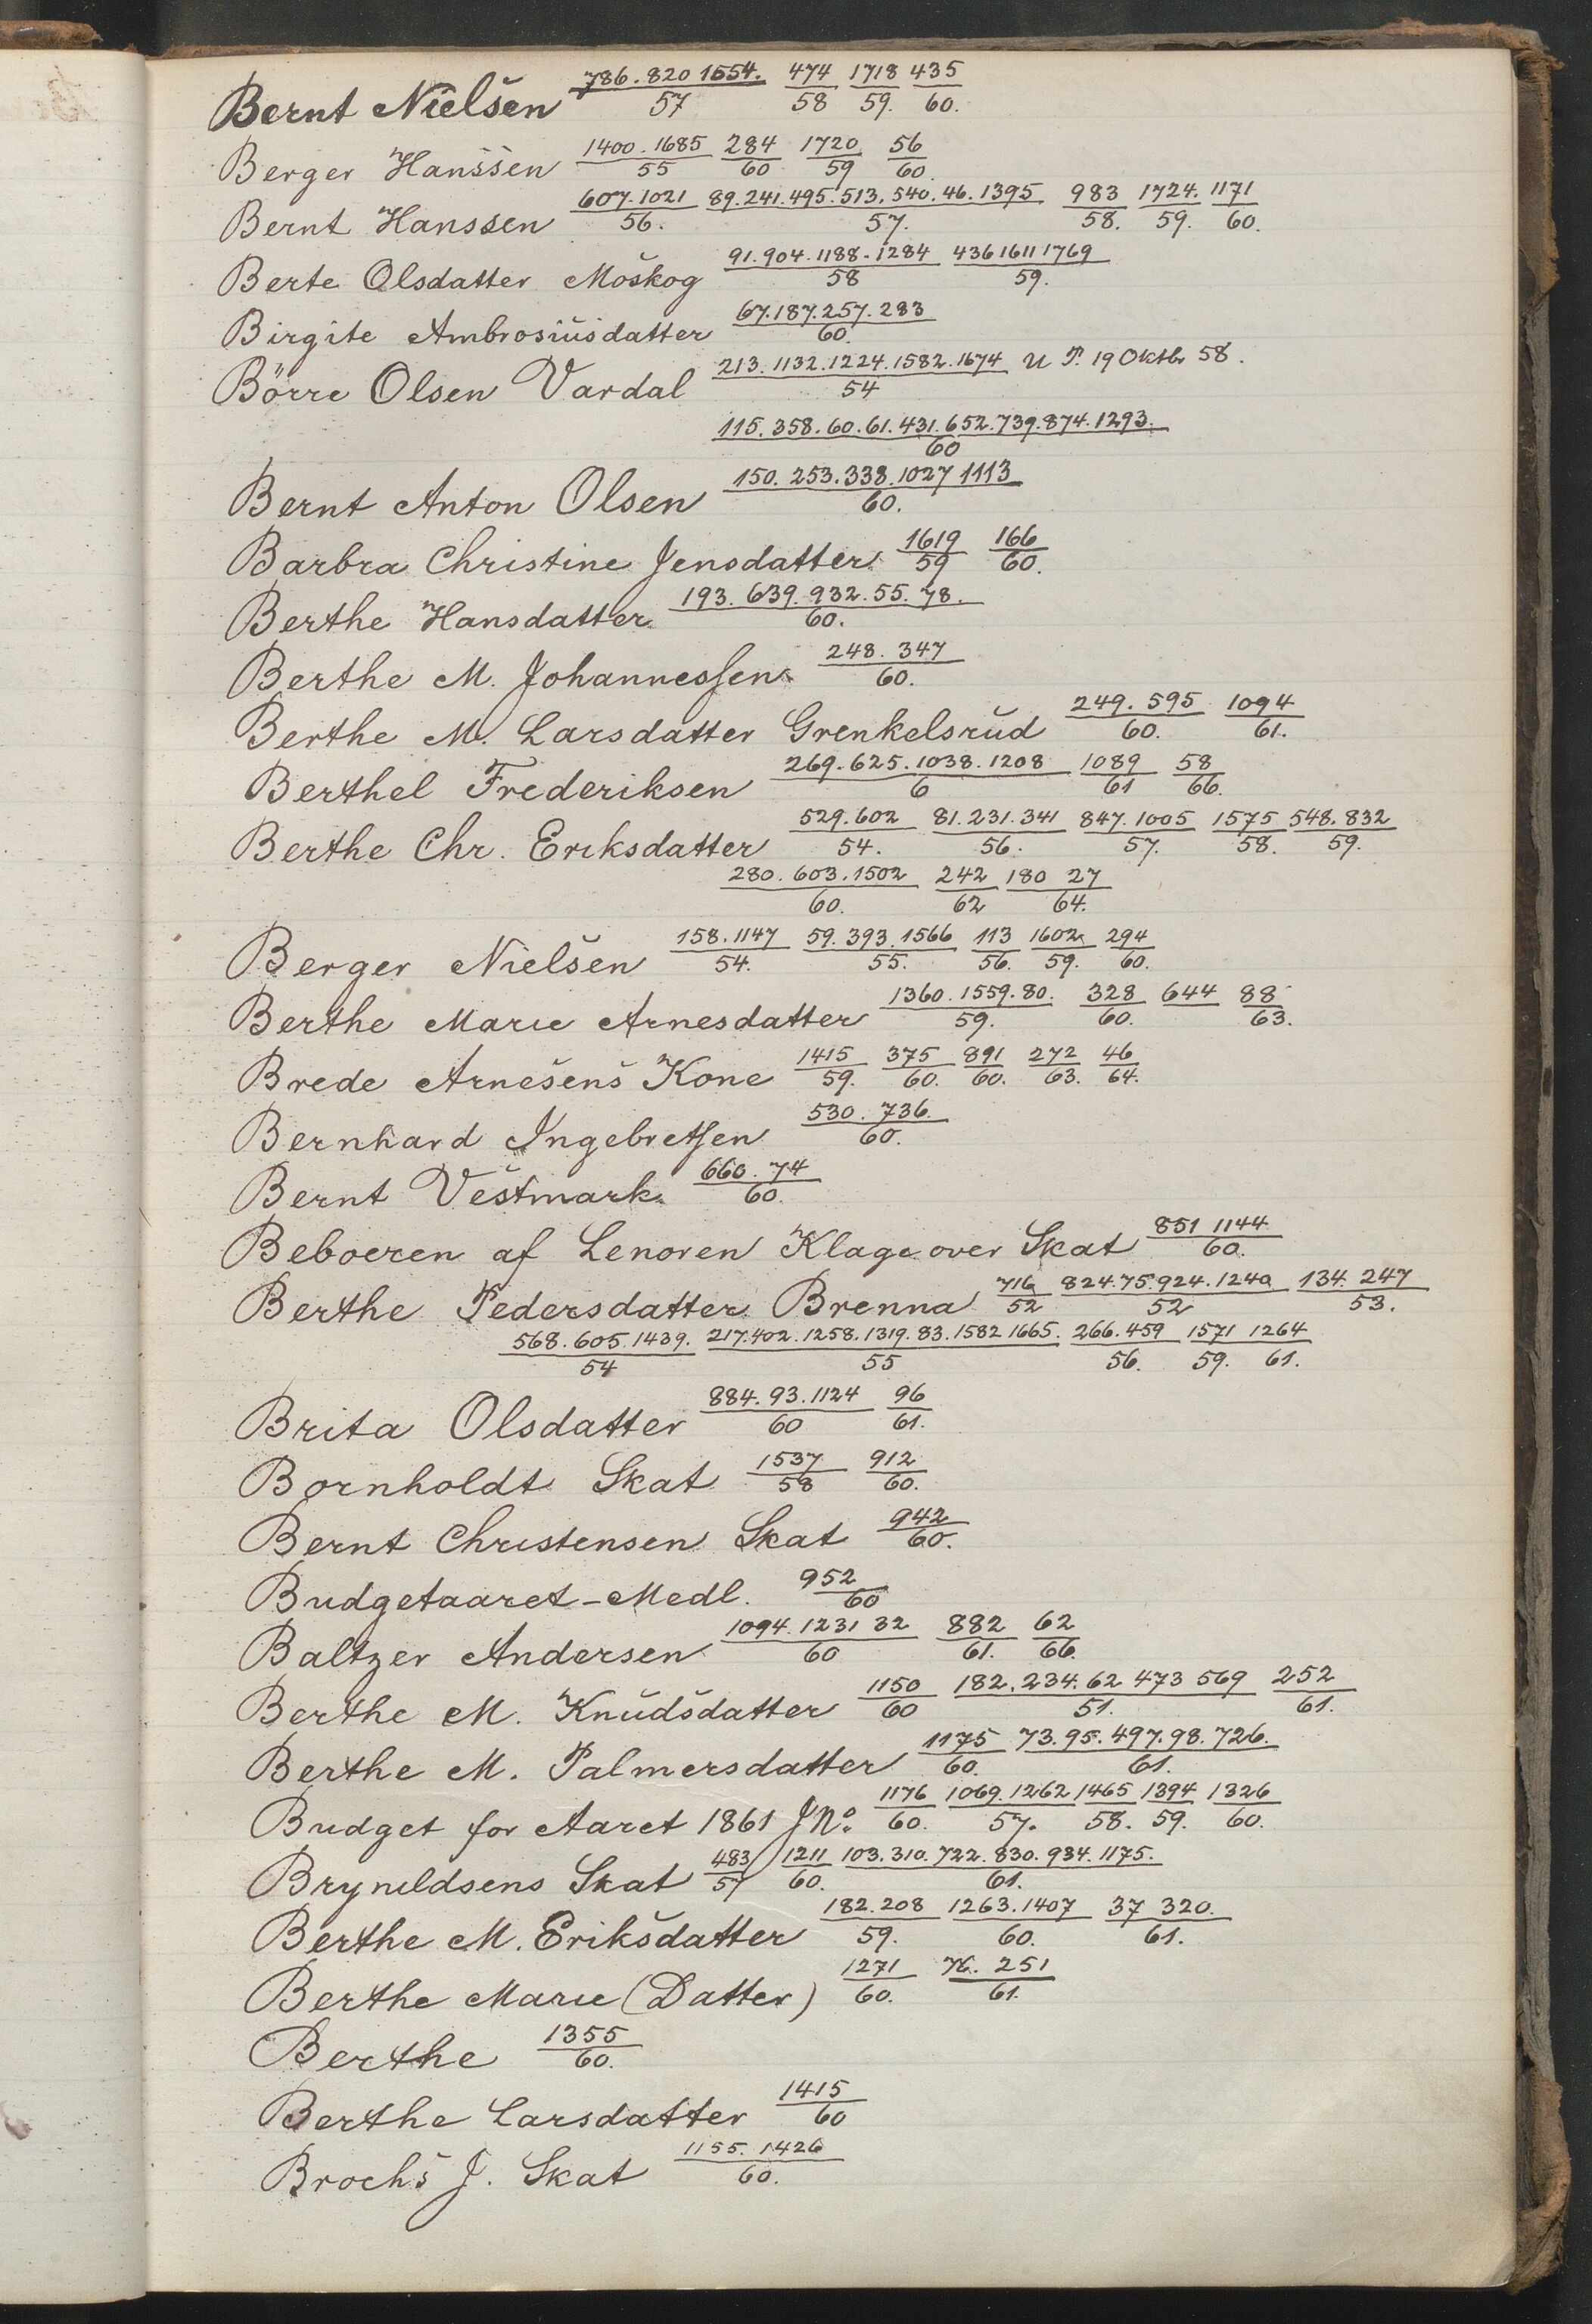 Bernt Nielsen 786.820 1554./57 474/58 1718/59. 435/60.
Berger Hanssen 1400.1685/55 284/60 1720/59 56/60.
Bernt Hanssen 607.1021/56. 89.241.495.513.540.46.1395/57. 983/58. 1724./59. 1171/60.
Berte Olsdatter Moskog 91.904.1188-1284/58 436 1611 1769/59.
Birgite Ambrosiusdatter 67.187.257.283/60.
Börre Olsen Vardal 213.1132.1224.1582.1674/54 U P. 19 Oktbr 58.
115.358.60.61.431.652.739.874.1293./60
Bernt Anton Olsen 150.253.338.1027 1113/60.
Barbra Christine Jensdatter 1619/59 166/60.
Berthe Hansdatter 193.639.932.55.78./60.
Berthe M. Johannessen 248.347/60.
Berthe M. Larsdatter Grenkelsrud 249.595/60. 1094/61.
Berthel Frederiksen 269.625.1038.1208/6 1089/61 58/66.
Berthe Chr. Eriksdatter 529.602/54. 81.231.341/56. 847.1005/57. 1575/58. 548.832/59.
280.603.1502/60. 242/62 180 27/64.
Berger Nielsen 158.1147/54. 59.393.1566/55. 113/56. 1602/59. 294/60.
Berthe Marie Arnesdatter 1360.1559.80./59. 328/60. 644 88/63.
Brede Arnesens Kone 1415/59. 375/60. 891/60. 272/63. 46/64.
Bernhard Ingebretsen 530.736./60.
Bernt Vestmark 660.74/60.
Beboeren af Lenoren Klage over Skat 851 1144/60.
Berthe Pedersdatter Brenna 716/52 824.75.924.1240/52 134.247/53.
568.605.1439./54 217.402.1258.1319.83.1582 1665./55 266.459/56. 1571/59. 1264/61.
Brita Olsdatter 884.93.1124/60 96/61.
Bornholdt Skat 1537/58 912/60.
Bernt Christensen Skat 942/60.
Budgetaaret-Medl. 952/60
Baltzer Andersen 1094.1231 32/60 882/61. 62/66.
Berthe M. Knudsdatter 1150/60 182.234.62 473 569/51. 252/61.
Berthe M. Palmersdatter 1175/60. 73.95.497.98.726./61.
Budget for Aaret 1861 JNo. 1176/60. 1069.1262/57. 1465/58. 1394/59. 1326/60.
Brynildsens Skat 483/57 1211/60. 103.310.722.830.934.1175./61.
Berthe M. Eriksdatter 182.208/59. 1263.1407/60. 37 320./61.
Berthe Marie (Datter) 1271/60. 76.251/61.
Berthe 1355/60.
Berthe Larsdatter 1415/60
Brochs J. Skat 1155.1426/60.